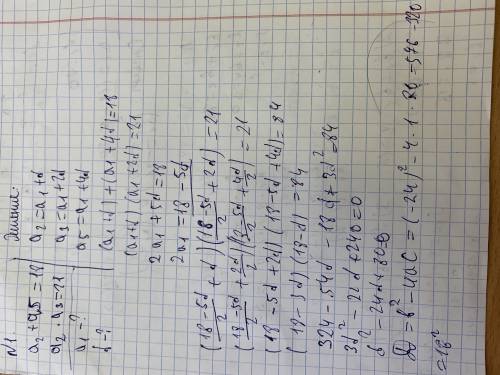 N1.
Решение:
a2 + a5 = 18
a2 · a3 = 21
a1 - ?
d - ?
a2 = a1 + d
a3 = a1 + 2d
a5 = a1 + 4d
(a1 + d) + (a1 + 4d) = 18
(a1 + d) (a1 + 2d) = 21
2a1 + 5d = 18
2a1 = 18 - 5d
((18 - 5d)/2 + d) ((18 - 5d)/2 + 2d) = 21
((18 - 5d + 2d)/2) ((18 - 5d + 4d)/2) = 21
(18 - 5d + 2d) (18 - 5d + 4d) = 84
(18 - 3d) (18 - d) = 84
324 - 54d - 18d + 3d² = 84
3d² - 72d + 240 = 0
d² - 24d + 80 = 0
D = b² - 4ac = (-24)² - 4 · 1 · 80 = 576 - 320
= 16²